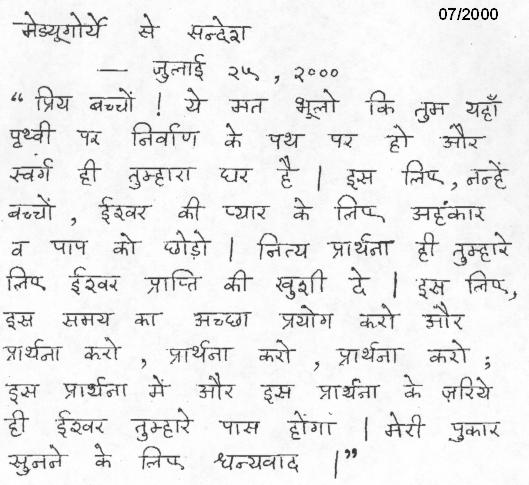 07/2000
मेड्यूगोर्ये से सन्देश
— जुलाई २५, २०००
“ प्रिय बच्चों ! ये मत भूलो कि तुम यहाँ
पृथ्वी पर निर्वाण के पथ पर हो और
स्वर्ग ही तुम्हारा घर है | इस लिए, नन्हें
बच्चों, ईश्वर की प्यार के लिए अहंकार
व पाप को छोड़ो | नित्य प्रार्थना ही तुम्हारे
लिए ईश्वर प्राप्ति की खुशी दे | इस लिए,
इस समय का अच्छा प्रयोग करो और
प्रार्थना करो, प्रार्थना करो, प्रार्थना करो ;
इस प्रार्थना में और इस प्रार्थना के ज़रिये
ही ईश्वर तुम्हारे पास होंगा | मेरी पुकार
सुनने के लिए धन्यवाद |”